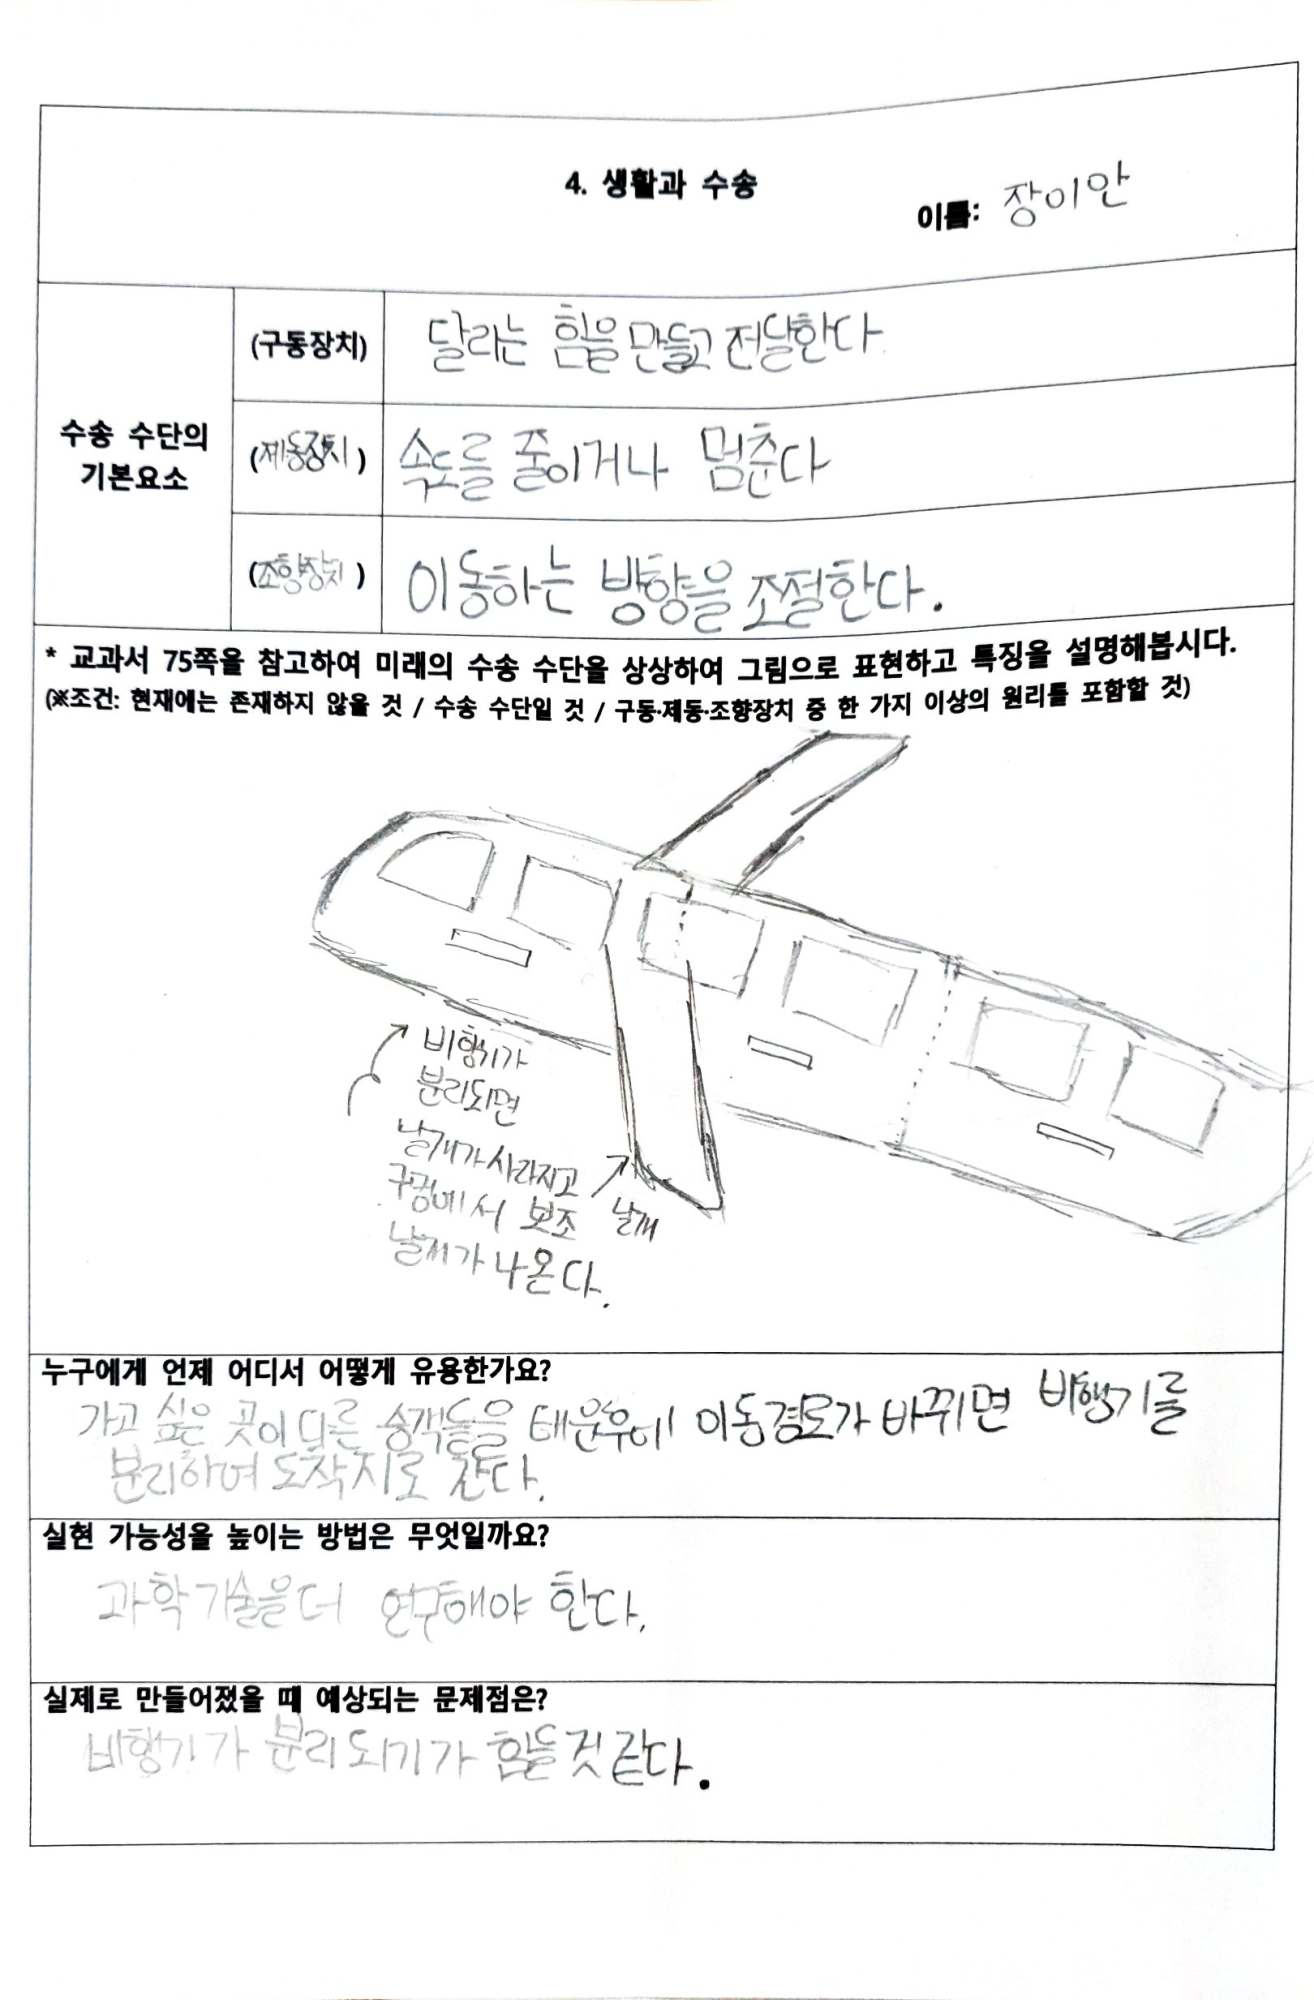 4. 생활과 수송
이름: 장이안
(구동장치) 달리는 힘을 만들고 전달한다.
수송 수단의
기본요소
(제동장치) 속도를 줄이거나 멈춘다
(조향장치) 이동하는 방향을 조절한다.
* 교과서 75쪽을 참고하여 미래의 수송 수단을 상상하여 그림으로 표현하고 특징을 설명해봅시다.
(※조건: 현재에는 존재하지 않을 것 / 수송 수단일 것 / 구동·제동·조향장치 중 한 가지 이상의 원리를 포함할 것)
비행기가
분리되면
날개가 사라지고
구멍에서 보조
날개가 나온다.
날개
누구에게 언제 어디서 어떻게 유용한가요?
가고 싶은 곳이 다른 승객들을 태운후에 이동경로가 바뀌면 비행기를
분리하여 도착지로 간다.
실현 가능성을 높이는 방법은 무엇일까요?
과학기술을 더 연구해야 한다.
실제로 만들어졌을 때 예상되는 문제점은?
비행기가 분리되기가 힘들것 같다.